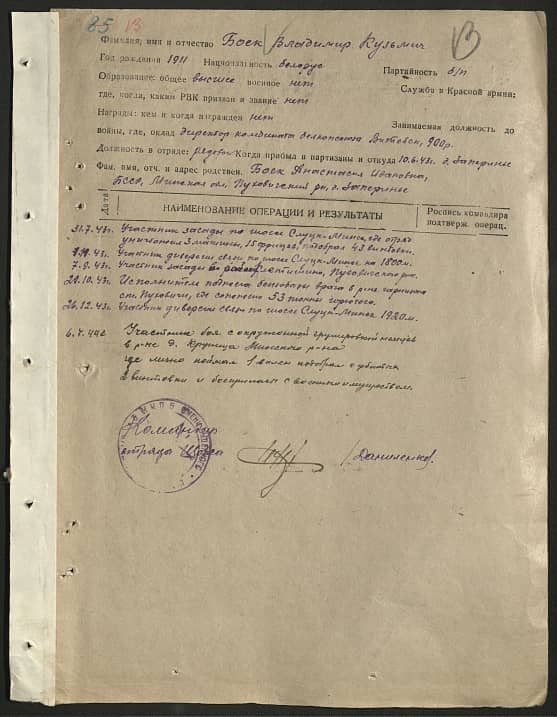 85 В
В
Фамилия, имя и отчество Боек Владимир Кузьмич
Год рождения 1911 Национальность белорус Партийность б/п
Образование: общее высшее военное нет Служба в Красной армии:
где, когда, каким РВК призван и звание нет
Награды: кем и когда награжден нет Занимаемая должность до
войны, где, оклад директор комбината Витебск, 900р.
Должность в отряде: рядовой Когда прибыл в партизаны и откуда 10.6.43г. д.
Фам. имя, отч. и адрес родствен. Боек Анастасия Ивановна,
БССР, Минская обл, Пуховичский рн, д.
Дата
НАИМЕНОВАНИЕ ОПЕРАЦИИ И РЕЗУЛЬТАТЫ
Роспись командира
подтверж. операц.
31.7.43г. Участник засады по шоссе Слуцк-Минск, где отряд
уничтожил 3 машины, 15 фрицев, подобрал 43 винтовки.
Участник диверсии связи по шоссе Слуцк-Минск на 1800м.
7.9.43г. Участник засады Пуховичского рн.
28.10.43г. Исполнитель подноса врага в р-не гарнизона
ст. Пуховичи, где сожжено 53 тонны горючего.
26.12.43г. Участник диверсии связи по шоссе Слуцк-Минск 1920м.
Участник боя с окруженной группировкой немцев
в р-не д. Крупица Минского р-на
где лично поймал 1 подобрал с убитых
2 винтовки и боеприпасы с военным имуществом.
Командир
отряда Щорса
/Даниленко/.